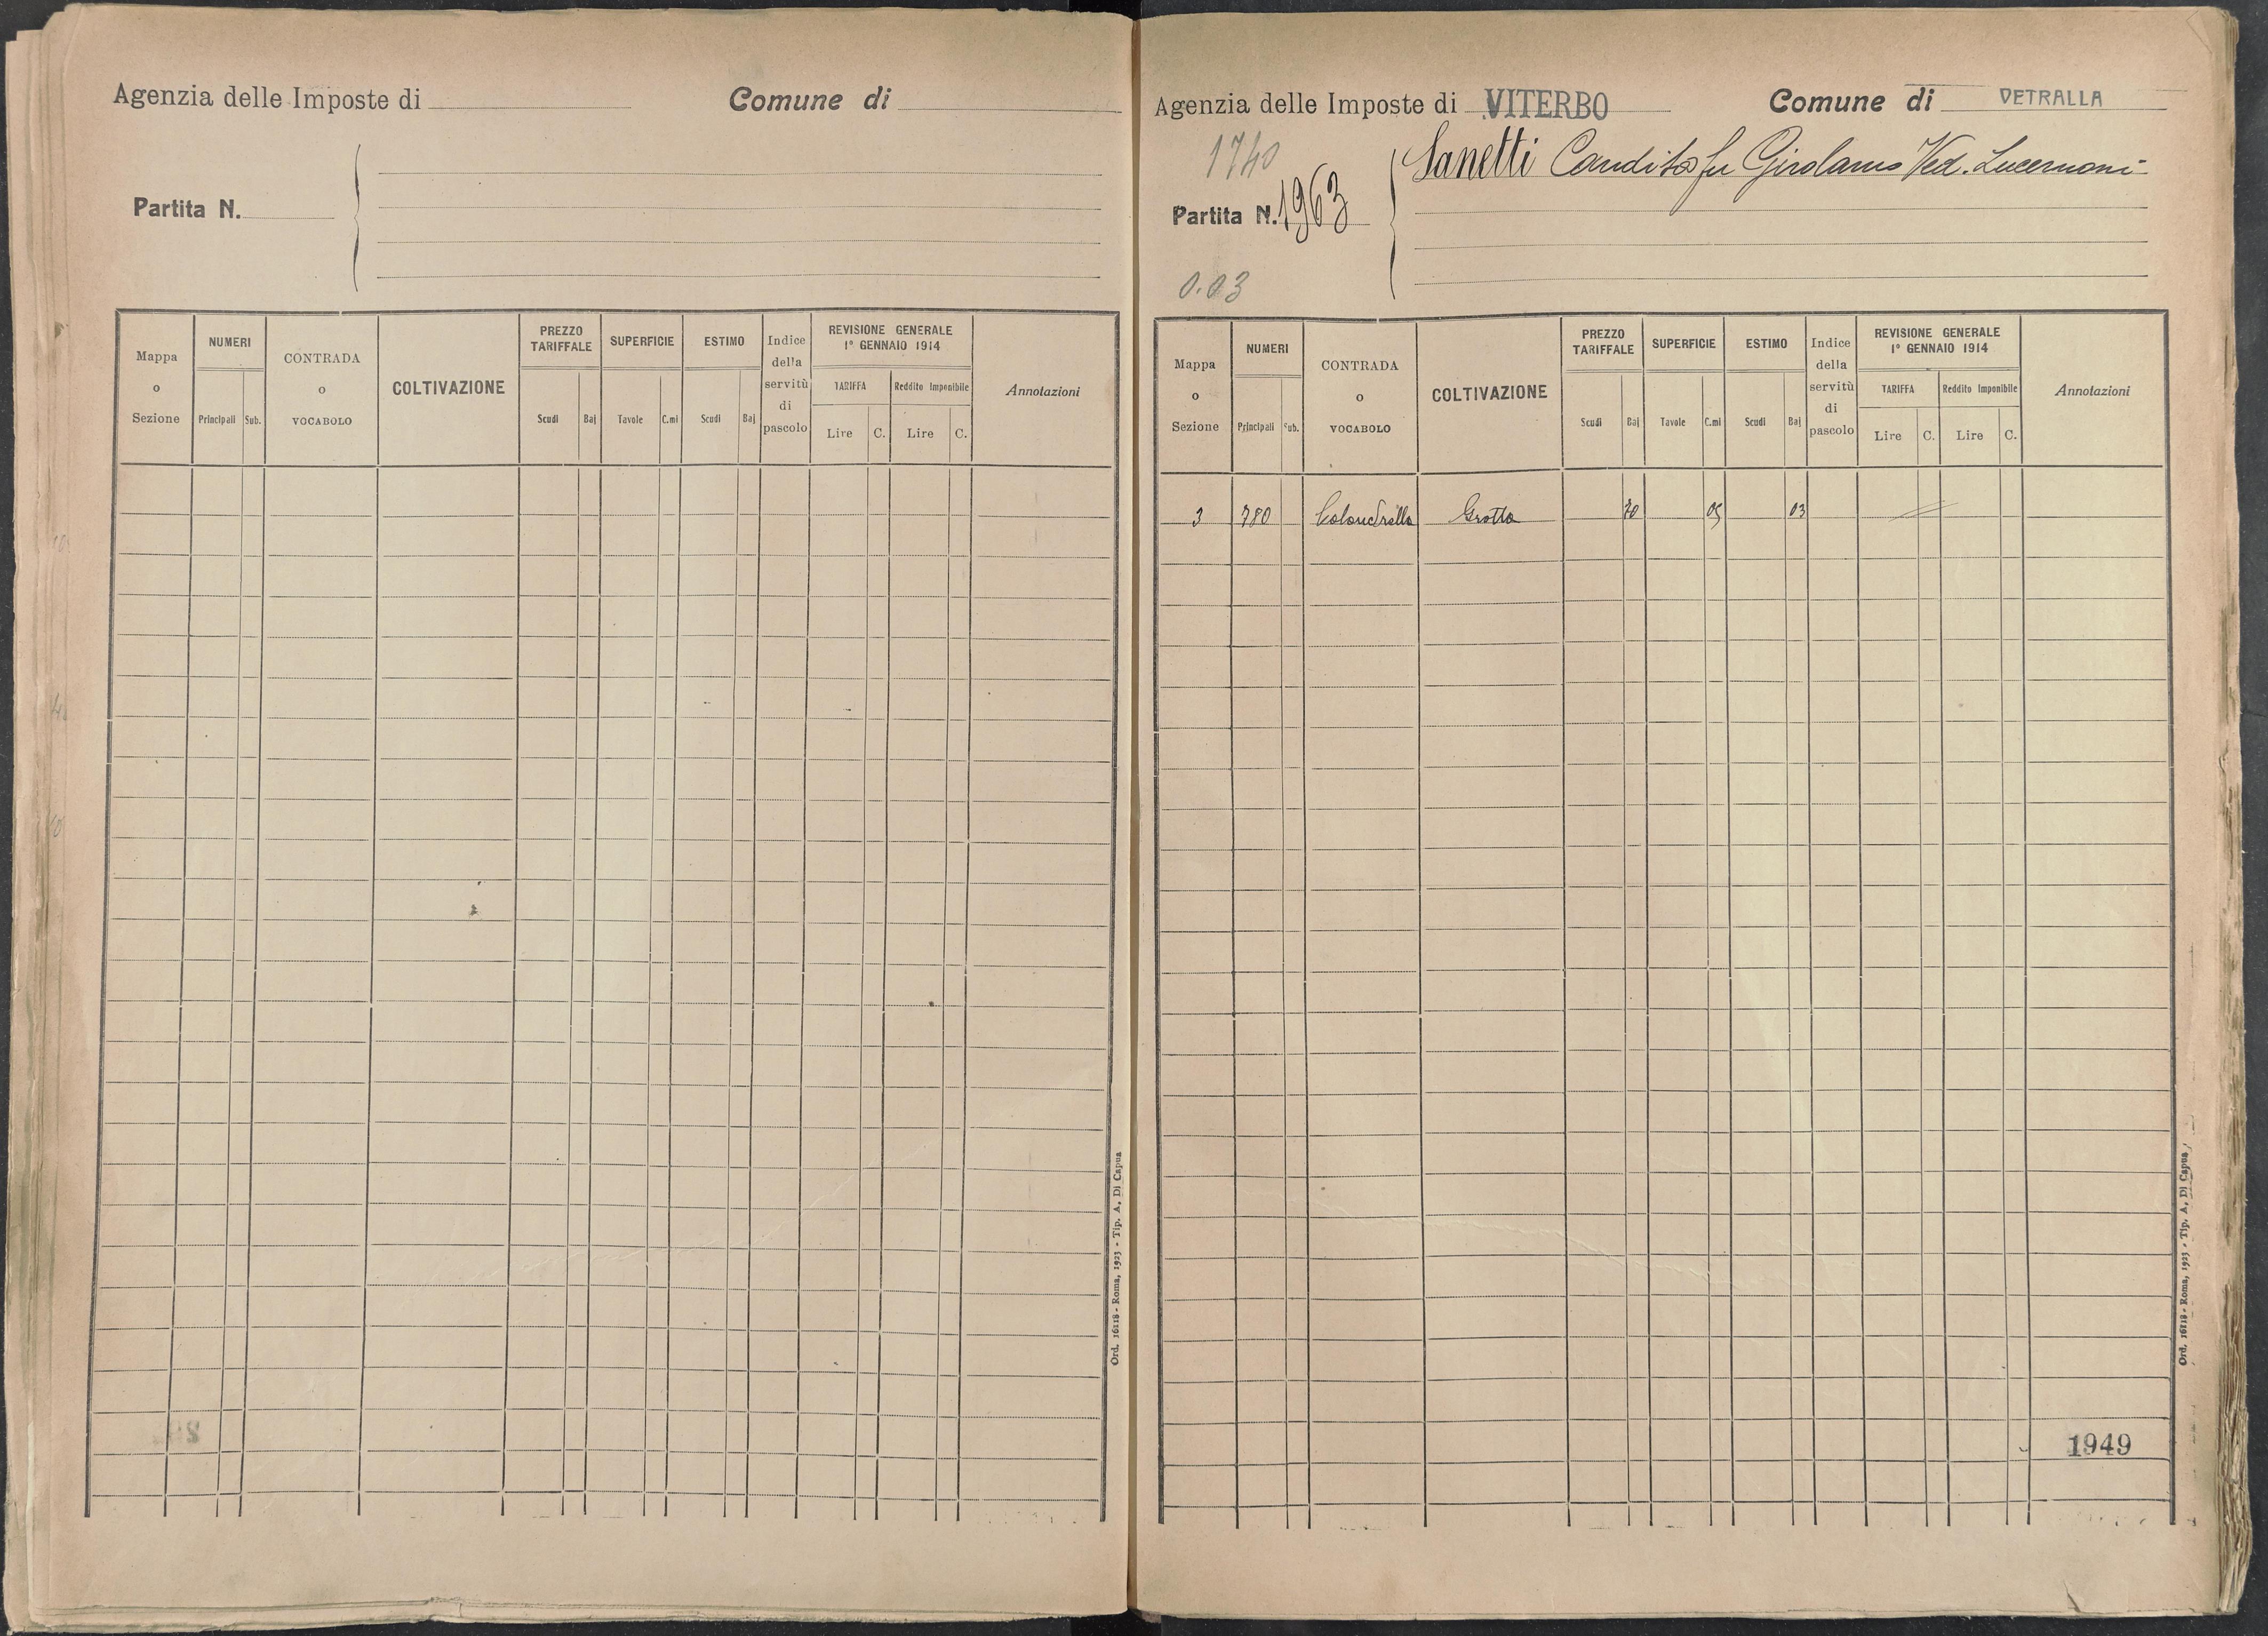 Agenzia delle Imposte di
Comune di
Partita N.
Mappa o Sezione
NUMERI
Principali Sub.
CONTRADA o VOCABOLO
COLTIVAZIONE
PREZZO TARIFFALE
Scudi Baj
SUPERFICIE
Tavole C.mi
ESTIMO
Scudi Baj
Indice della servitù di pascolo
REVISIONE GENERALE
1° GENNAIO 1914
TARIFFA
Lire C.
Reddito Imponibile
Lire C.
Annotazioni
Ord. 16118 - Roma, 1923 - Tip. A. Di Capua
Agenzia delle Imposte di VITERBO
Comune di VETRALLA
1740
Partita N. 1963
0.03
Candida fu Girolamo Ved. Lucernoni
Mappa o Sezione
NUMERI
Principali Sub.
CONTRADA o VOCABOLO
COLTIVAZIONE
PREZZO TARIFFALE
Scudi Baj
SUPERFICIE
Tavole C.mi
ESTIMO
Scudi Baj
Indice della servitù di pascolo
REVISIONE GENERALE
1° GENNAIO 1914
TARIFFA
Lire C.
Reddito Imponibile
Lire C.
Annotazioni
3 780 Grotta 70 05 03
1949
Ord. 16118 - Roma, 1923 - Tip. A. Di Capua